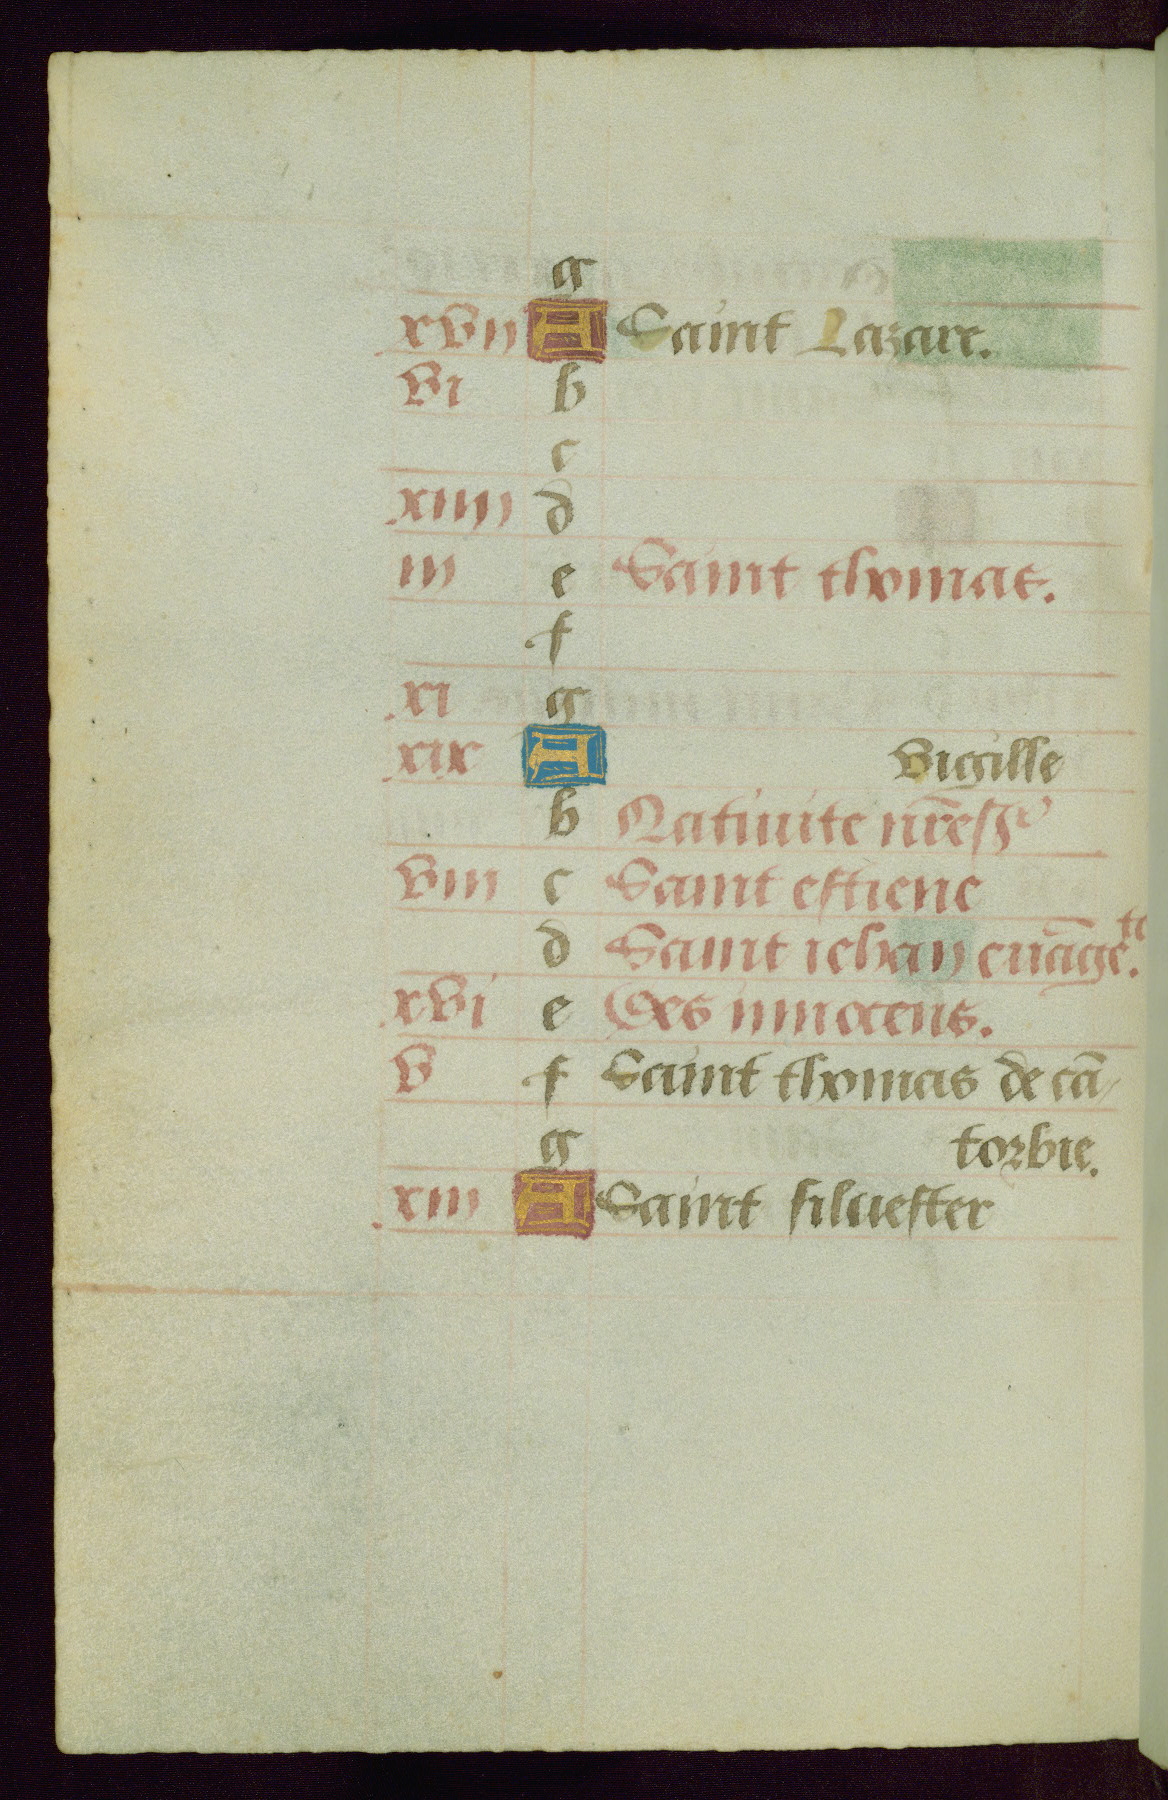 g
xvii A Saint Lazare.
vi b
c
xiiii d
iii e Saint thomas.
f
xi g
xix A vigille
b Natiuite nr̄e sʳ
viii c Saint estiene
d Saint iehan euāge.te
xvi e Les innocens.
v f Saint thomas de cā
g torbie.
xiii A Saint siluester